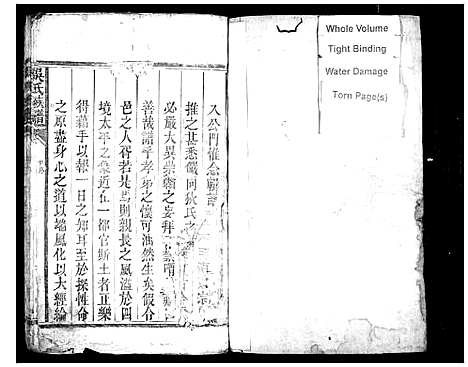 Whole Volume
Tight Binding
Water Damage
Torn Page(s)
入公門惟念
推之甚悉儀同狄氏之
必嚴大異崇韜之妄拜
善哉謂乎孝弟之懷可油然生矣假合
邑之人胥若是焉則親長之風溢於四
境太平之象近在一都官斯土者正樂
得藉手以報一日之知耳至於探性命
之原盡身心之道以端風化以大經綸
吳氏族譜